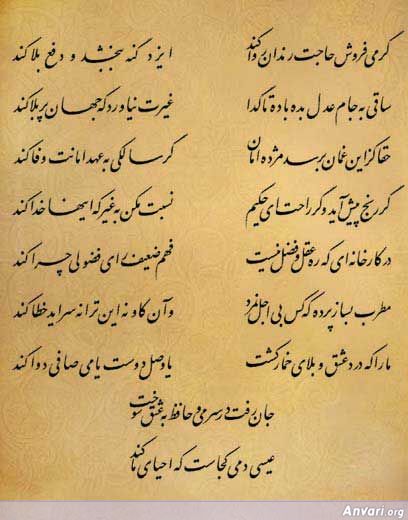 گر می فروش حاجت رندان روا کند ایزد گنه ببخشد و دفع بلا کند
ساقی به جام عدل بده باده تا گدا غیرت نیاورد که جهان پر بلا کند
حقا کزین غمان برسد مژده امان گر سالکی به عهد امانت وفا کند
گر رنج پیش آید و گر راحت ای حکیم نسبت مکن به غیر که اینها خدا کند
در کارخانه ای که ره عقل و فضل نیست فهم ضعیف رای فضولی چرا کند
مطرب بساز پرده که کس بی اجل نمرد وآن کاو نه این ترانه سراید خطا کند
ما را که درد عشق و بلای خمار کشت یا وصل دوست یا می صافی دوا کند
جان رفت در سر می و حافظ به عشق سوخت
عیسی دمی کجاست که احیای ما کند
Anvari.org